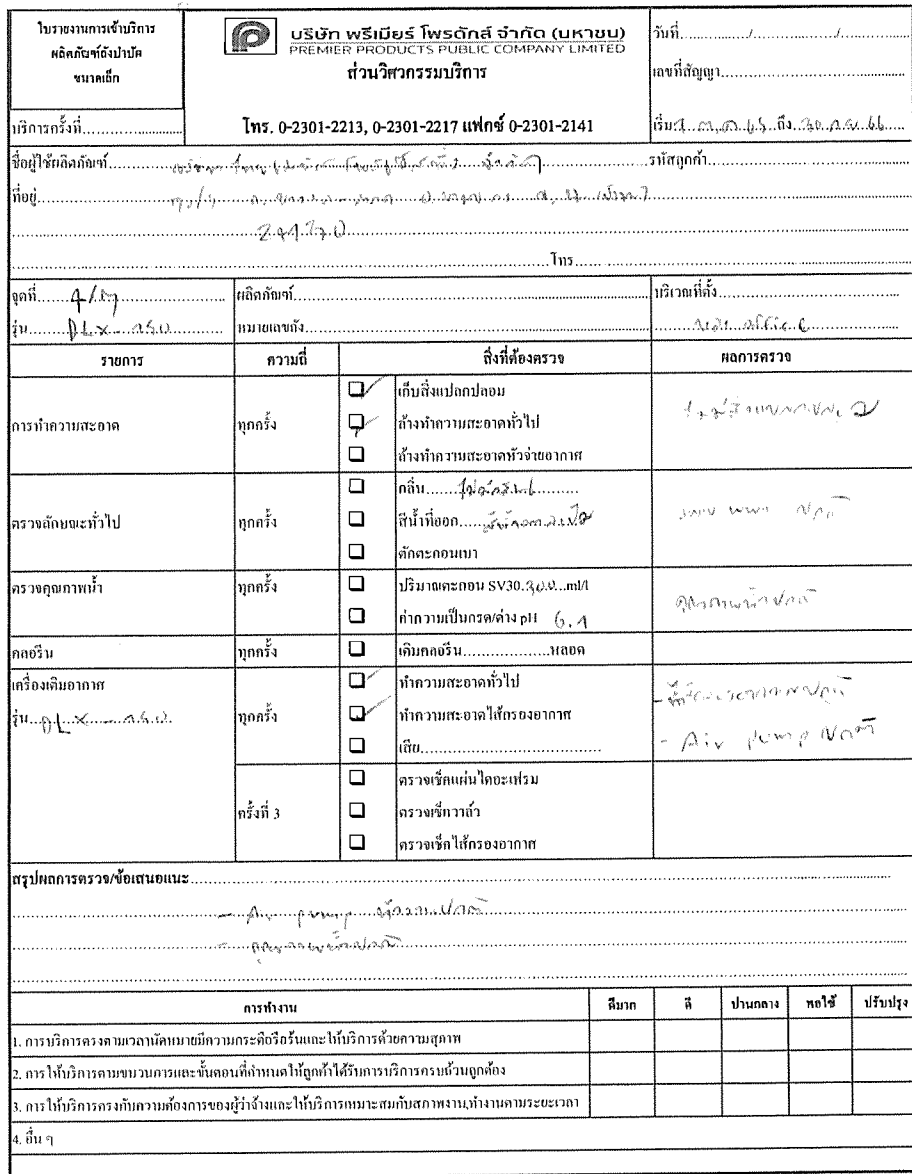 ใบรายงานการเข้าบริการ
ผลิตภัณฑ์ถังบำบัด
ขนาดเล็ก
บริการครั้งที่
บริษัท พรีเมียร์ โพรดักส์ จำกัด (มหาชน)
PREMIER PRODUCTS PUBLIC COMPANY LIMITED
ส่วนวิศวกรรมบริการ
โทร. 0-2301-2213, 0-2301-2217 แฟกซ์ 0-2301-2141
วันที่............/............/............
เลขที่สัญญา
เริ่ม 1 ต.ค 65 ถึง 30 ก.ย 66
ชื่อผู้ใช้ผลิตภัณฑ์ รหัสลูกค้า
ที่อยู่
โทร
จุดที่ ผลิตภัณฑ์ บริเวณที่ตั้ง
รุ่น DLX-150 หมายเลขถัง office
รายการ ความถี่ สิ่งที่ต้องตรวจ ผลการตรวจ
การทำความสะอาด ทุกครั้ง
เก็บสิ่งแปลกปลอม
ล้างทำความสะอาดทั่วไป
ล้างทำความสะอาดหัวจ่ายอากาศ
ตรวจลักษณะทั่วไป ทุกครั้ง
กลิ่น ไม่มีกลิ่น
สีน้ำที่ออก
ตักตะกอนเบา
ปกติ
ตรวจคุณภาพน้ำ ทุกครั้ง
ปริมาณตะกอน SV30 300 ml/l
ค่าความเป็นกรด/ด่าง pH 6.1
คุณภาพน้ำปกติ
คลอรีน ทุกครั้ง เติมคลอรีน..................หลอด
เครื่องเติมอากาศ
รุ่น DLX-150 ทุกครั้ง
ทำความสะอาดทั่วไป
ทำความสะอาดไส้กรองอากาศ
เสีย
- Air pump ปกติ
ครั้งที่ 3
ตรวจเช็คแผ่นไดอะเฟรม
ตรวจเช็กวาล์ว
ตรวจเช็กไส้กรองอากาศ
สรุปผลการตรวจ/ข้อเสนอแนะ
- Air pump ทำงานปกติ
- คุณภาพน้ำปกติ
การทำงาน ดีมาก ดี ปานกลาง พอใช้ ปรับปรุง
1. การบริการตรงตามเวลานัดหมายมีความกระตือรือร้นและให้บริการด้วยความสุภาพ
2. การให้บริการตามขบวนการและขั้นตอนที่กำหนดให้ลูกค้าได้รับการบริการครบถ้วนถูกต้อง
3. การให้บริการตรงกับความต้องการของผู้ว่าจ้างและให้บริการเหมาะสมกับสภาพงาน,ทำงานตามระยะเวลา
4. อื่น ๆ